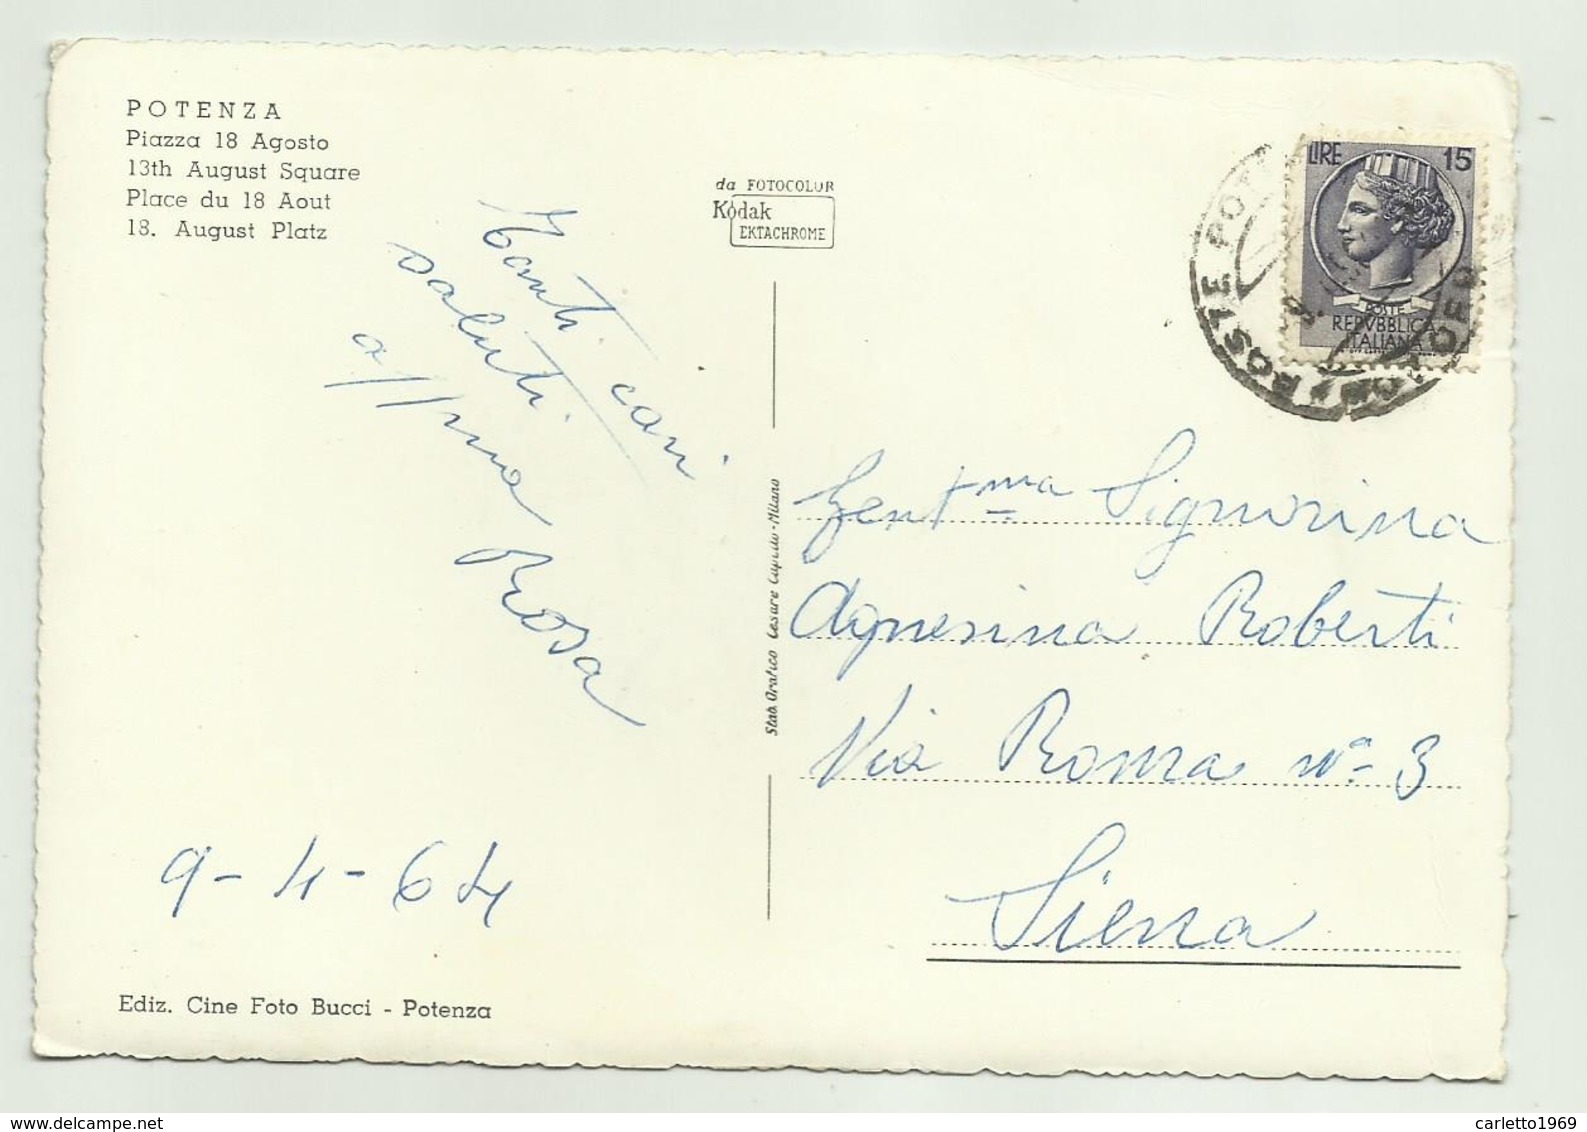 POTENZA
Piazza 18 Agosto
13th August Square
Place du 18 Aout
18. August Platz
da FOTOCOLOR
Kodak
EKTACHROME
LIRE 15
POSTE
REPVBBLICA
ITALIANA
POSTE
Tanti cari
saluti
aff/ma
Rosa
9-4-64
Ediz. Cine Foto Bucci - Potenza
Stab. Grafico Cesare Capello - Milano
Gent.ma Signorina
Agnesina Roberti
Via Roma n° 3
Siena
carletto1969